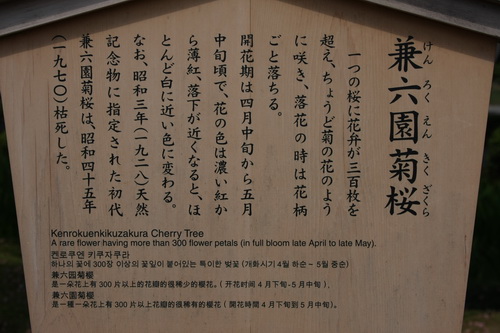 兼六園菊桜
けん ろく えん きく ざくら
一つの桜に花弁が三百枚を
超え、ちょうど菊の花のよう
に咲き、落花の時は花柄
ごと落ちる。
開花期は四月中旬から五月
中旬頃で、花の色は濃い紅か
ら薄紅、落下が近くなると、ほ
とんど白に近い色に変わる。
なお、昭和三年(一九二八)天然
記念物に指定された初代
兼六園菊桜は、昭和四十五年
(一九七〇)枯死した。
Kenrokuenkikuzakura Cherry Tree
A rare flower having more than 300 flower petals (in full bloom late April to late May).
켄로쿠엔 키쿠자쿠라
하나의 꽃에 300장 이상의 꽃잎이 붙어있는 특이한 벚꽃 (개화시기 4월 하순~ 5월 중순)
兼六园菊樱
是一朵花上有 300 片以上的花瓣的很稀少的樱花。(开花时间 4 月下旬-5 月中旬)。
兼六園菊櫻
是一種一朵花上有 300 片以上花瓣的很稀有的櫻花(開花時間 4 月下旬到 5 月中旬)。